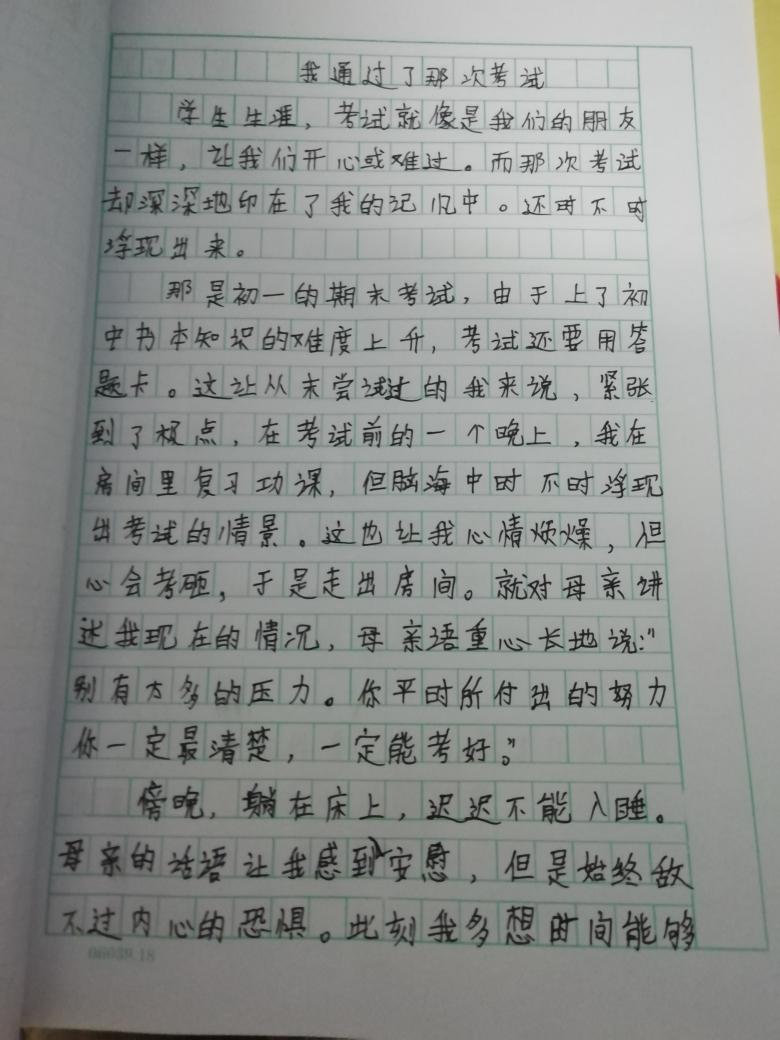 我通过了那次考试
学生生涯，考试就像是我们的朋友
一样，让我们开心或难过。而那次考试
却深深地印在了我的记忆中。还时不时
浮现出来。
那是初一的期末考试，由于上了初
中书本知识的难度上升，考试还要用答
题卡。这让从未尝试过的我来说，紧张
到了极点，在考试前的一个晚上，我在
房间里复习功课，但脑海中时不时浮现
出考试的情景。这也让我心情烦燥，但
心会考砸，于是走出房间。就对母亲讲
述我现在的情况，母亲语重心长地说："
别有太多的压力。你平时所付出的努力
你一定最清楚，一定能考好。"
傍晚，躺在床上，迟迟不能入睡。
母亲的话语让我感到安慰，但是始终敌
不过内心的恐惧。此刻我多想时间能够
06039.18